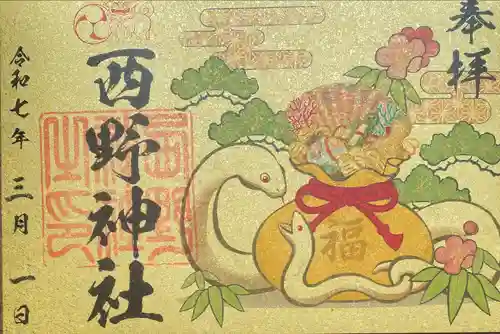 奉拝
西野神社
令和七年 三月 一日
福